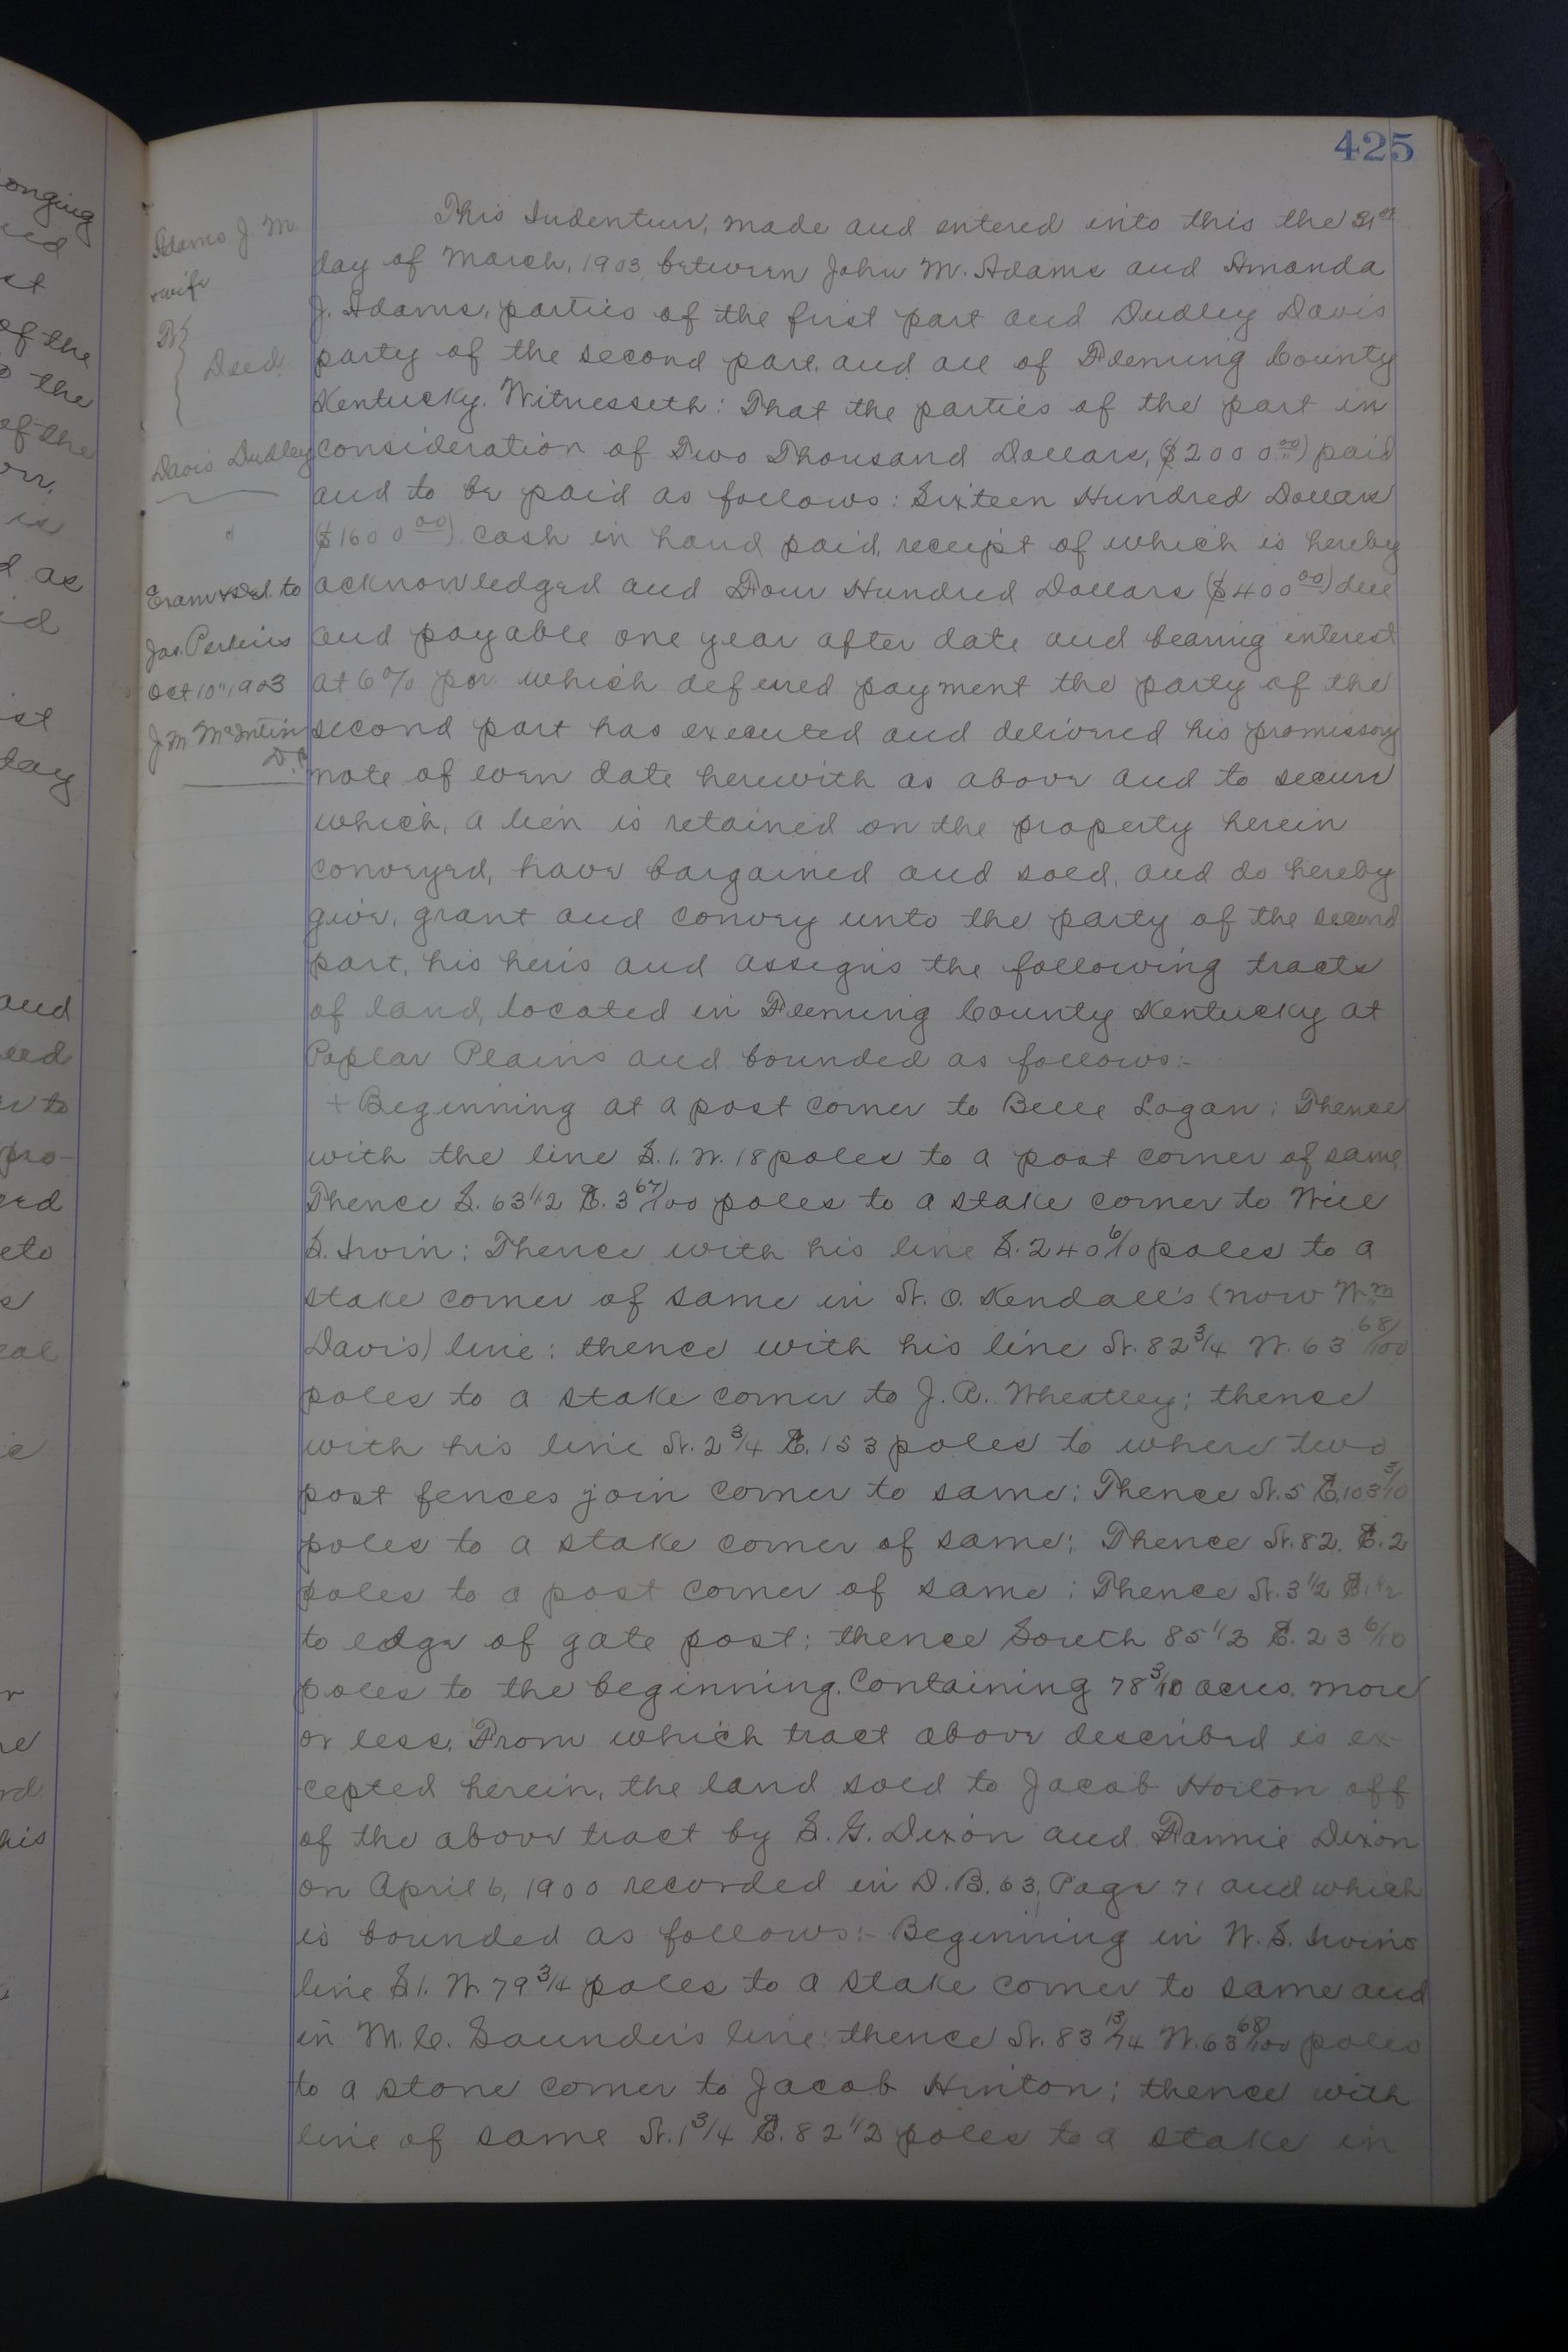 425
Adams J M
& wife
To
Deed
Davis Dudley
Exam & Del. to
Jas. Perkins
Oct 10" 1903
J M McIntire
D.C.
This Indenture, made and entered into this the
day of March, 1903 between John M. Adams and Amanda
J. Adams, parties of the first part and Dudley Davis
party of the second part, and all of Fleming County
Kentucky. Witnesseth: That the parties of the part in
consideration of Two Thousand Dollars, ($2000.00) paid
and to be paid as follows: Sixteen Hundred Dollars
($1600.00) cash in hand paid, receipt of which is hereby
acknowledged and Four Hundred Dollars ($400.00) due
and payable one year after date and bearing interest
at 6% for which defered payment the party of the
second part has executed and delivered his promissory
note of even date herewith as above and to secure
which, a lien is retained on the property herein
conveyed, have bargained and sold, and do hereby
give, grant and convey unto the party of the second
part, his heirs and assigns the following tracts
of land, located in Fleming County Kentucky at
Poplar Plains and bounded as follows:-
+ Beginning at a post corner to Belle Logan; Thence
with the line S. 1. W. 18 poles to a post corner of same
Thence S. 63 1/2 E. 3 67/100 poles to a stake corner to Will
S. Irvin; Thence with his line S. 2 40 6/10 poles to a
stake corner of same in N. O. Kendall's (now Wm
Davis) line: thence with his line N. 82 3/4 W. 63 68/100
poles to a stake corner to J. A. Wheatley; thence
with his line N. 2 3/4 E. 153 poles to where two
post fences join corner to same; Thence N. 5 E. 103 3/10
poles to a stake corner of same; Thence N. 82. E. 2
poles to a post corner of same; Thence N. 3 1/2 E. 1 1/2
to edge of gate post; thence South 85 1/2 E. 23 6/10
poles to the beginning. Containing 78 3/10 acres, more
or less. From which tract above described is ex-
cepted herein, the land sold to Jacob Horton off
of the above tract by S. G. Dixon and Fannie Dixon
on April 6, 1900 recorded in D. B. 63, Page 71 and which
is bounded as follows:- Beginning in W. S. Irvins
line S 1. W. 79 3/4 poles to a stake corner to same and
in M. C. Saunders line; thence N. 83 13/74 W. 63 68/100 poles
to a stone corner to Jacob Hinton; thence with
line of same N. 1 3/4 E. 82 1/2 poles to a stake in